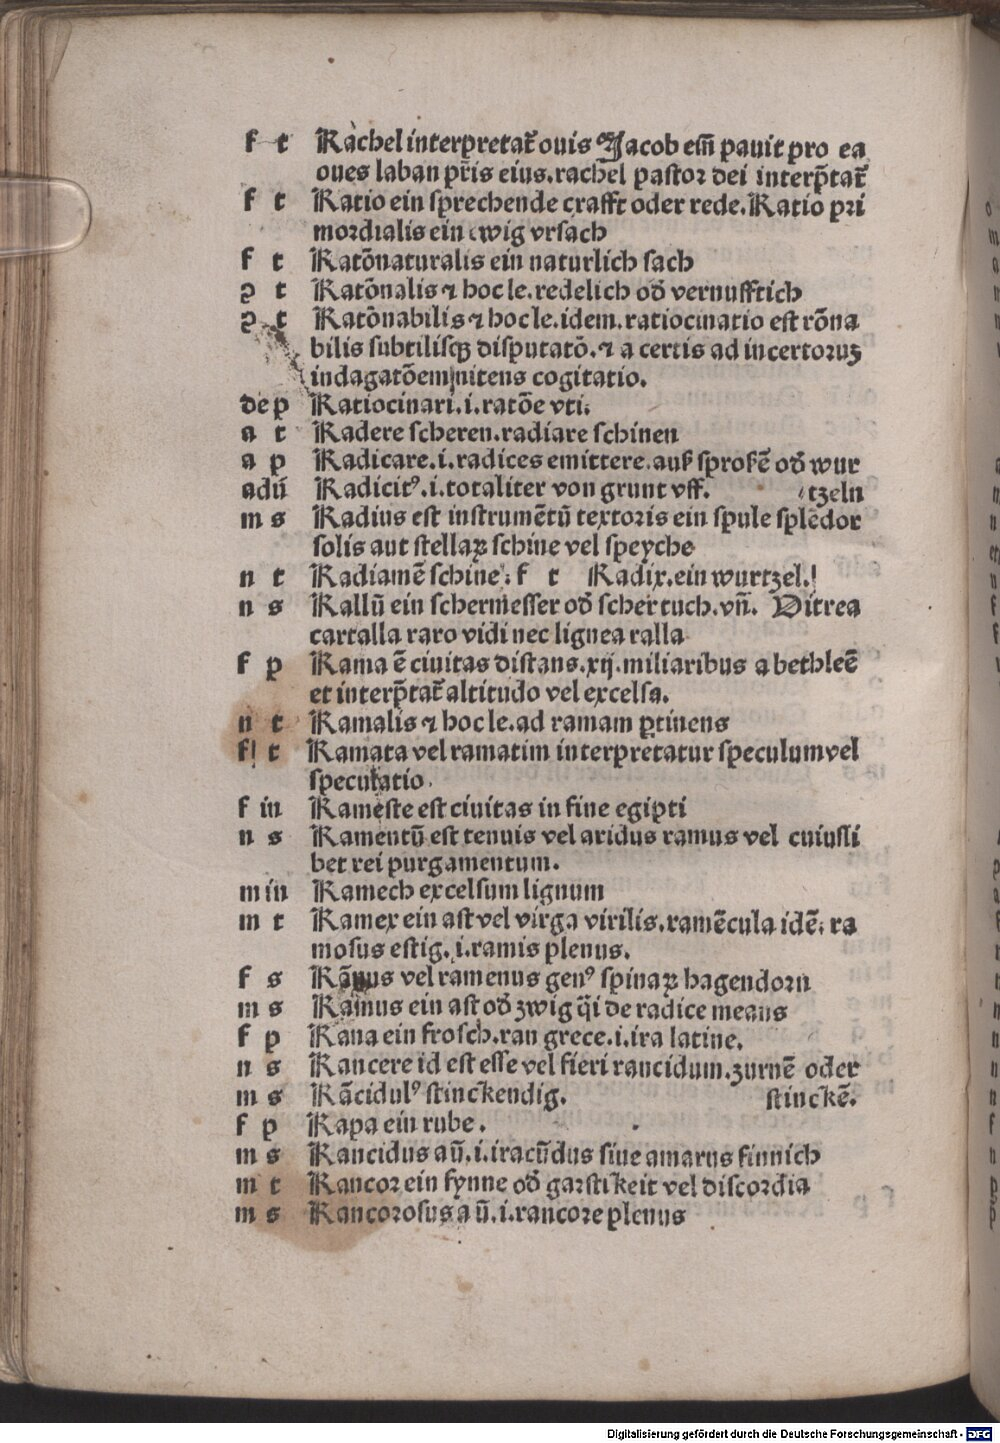 f t Rachel interpretat᷑ ouis Jacob em̃ pauit pro ea
oues laban pr̃is eius. rachel pastor dei interp̃tat᷑
f t Ratio ein sprechende crafft oder rede. Ratio pri
mordialis ein ewig vrsach
f t Ratõnaturalis ein naturlich sach
ꝯ t Ratõnalis ⁊ hoc le. redelich od̕ vernufftich
ꝯ t Ratõnabilis ⁊ hoc le. idem. ratiocinatio est rõna
bilis subtilisqꝫ disputatõ. ⁊ a certis ad incertoruꝫ
indagatõem nitens cogitatio.
de p Ratiocinari. i. ratõe vti.
a t Radere scheren. radiare schinen
a p Radicare. i. radices emittere. auß sproßẽ od̕ wur
adũ Radicitꝰ. i. totaliter von grunt vff. tzeln
m s Radius est instrumẽtũ textoris ein spule splẽdor
solis aut stellaꝝ schine vel speyche
n t Radiamẽ schine. f t Radix. ein wurtzel.
n s Rallũ ein schermesser od̕ schertuch. vñ. Vitrea
cartalla raro vidi nec lignea ralla
f p Rama ẽ ciuitas distans. xij. miliaribus a bethleẽ
et interp̃tat᷑ altitudo vel excelsa.
n t Ramalis ⁊ hoc le. ad ramam ꝑtinens
f t Ramata vel ramatim interpretatur speculum vel
speculatio.
f in Rameste est ciuitas in fine egipti
n s Ramentũ est tenuis vel aridus ramus vel cuiusli
bet rei purgamentum.
m in Ramech excelsum lignum
m t Ramex ein ast vel virga virilis. ramẽcula idẽ. ra
mosus estig. i. ramis plenus.
f s Rãnus vel ramenus genꝰ spinaꝝ hagendorn
m s Ramus ein ast od̕ zwig q̃i de radice means
f p Rana ein frosch. ran grece. i. ira latine.
n s Rancere id est esse vel fieri rancidum. zurnẽ oder
m s Rãcidulꝰ stinckendig. stinckẽ.
f p Rapa ein rube.
m s Rancidus aũ. i. iracũdus siue amarus finnich
m t Rancor ein fynne od̕ garstikeit vel discordia
m s Rancorosus a ũ. i. rancore plenus
Digitalisierung gefördert durch die Deutsche Forschungsgemeinschaft - DFG